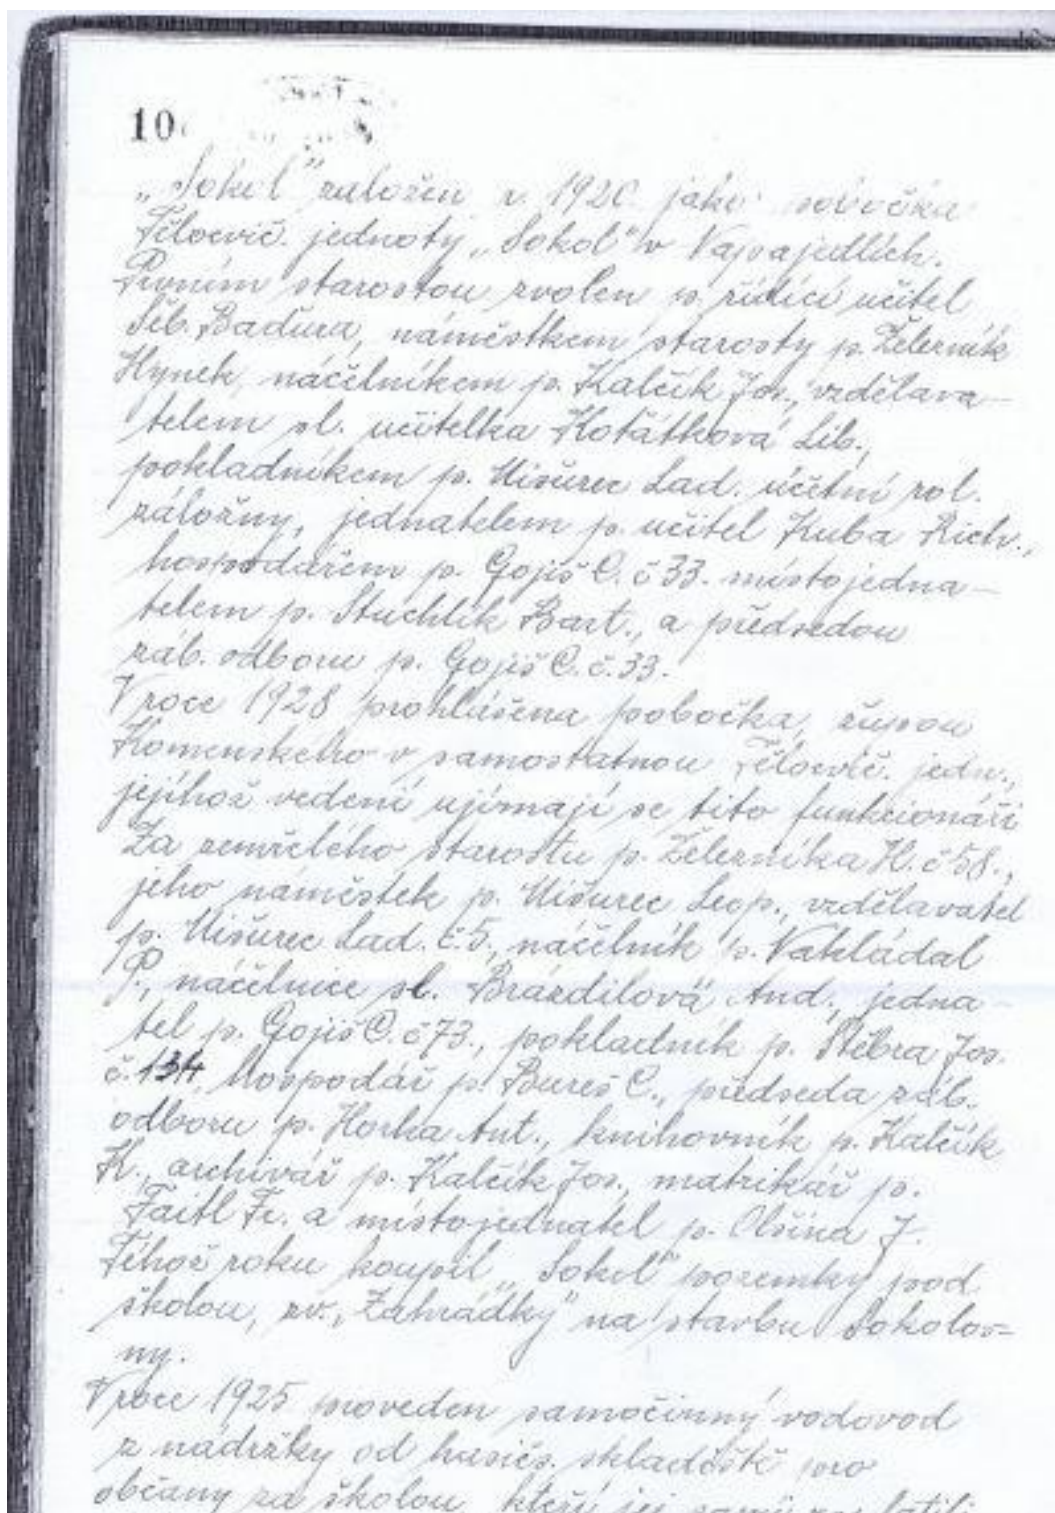 10
„Sokol" založen r. 1920 jako pobočka
Tělocvič. jednoty „Sokol" v Napajedlích.
Prvním starostou zvolen p. řídící učitel
Šeb. Baďura, náměstkem starosty p. Železník
Hynek, náčelníkem p. Kalčík Jos., vzdělava-
telem sl. učitelka Kořátková Lib.,
pokladníkem p. Mišurec Lad. účetní rol.
záložny, jednatelem p. učitel Kuba Rich.,
hospodářem p. Gojiš C. č 33. místojedna-
telem p. Stuchlík Bart., a předsedou
záb. odboru p. Gojiš C. č. 33.
V roce 1928 prohlášena pobočka, župou
Komenského v samostatnou Tělocvič. jedn.,
jejíhož vedení ujímají se tito funkcionáři
Za zemřelého starostu p. Železníka H. č 58.,
jeho náměstek p. Mišurec Leop., vzdělavatel
p. Mišurec Lad. č. 5., náčelník p. Vakládal
P., náčelnice sl. Brázdilová And., jedna-
tel p. Gojiš C. č 73., pokladník p. Stěbra Jos.
č. 134, hospodář p. Bureš C., předseda záb.
odboru p. Horka Ant., knihovník p. Kalčík
K., archivář p. Kalčík Jos., matrikář p.
Faitl Fr. a místojednatel p. Olšina J.
Téhož roku koupil „Sokol" pozemky pod
školou, zv. „Zahrádky" na stavbu Sokolov=
ny.
V roce 1925 proveden samočinný vodovod
z nádržky od hasičs. skladiště pro
občany za školou, kteří jej sami zaplatili